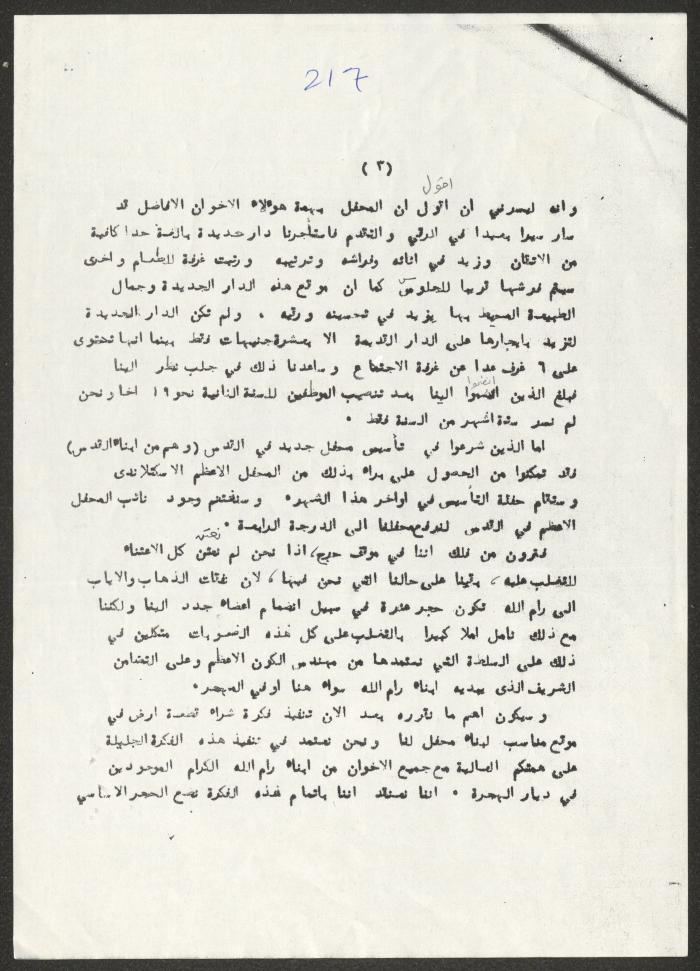 217
(٣)
اقول
وانه ليسرني ان اتول ان المحفل بهمة هولاء الاخوان الافاضل قد
سار سيرا بعيدا في الرقي والتقدم فاستأجرنا دار جديدة بالغة حدا كافية
من الاتقان وزيد في اثاثه وفراشه وترتيبه ورتبت غرفة للطعام واخرى
سيتم فرشها قريبا للجلوس كما ان موقع هذه الدار الجديدة وجمال
الطبيعة المحيط بها يزيد في تحسينه ورقيه ، ولم تكن الدار الجديدة
لتزيد بايجارها على الدار القديمة الا بعشرة جنيهات فقط بينما انها تحتوى
على ٦ غرف عدا عن غرفة الاجتماع وساعدنا ذلك في جلب نظر الينا
انضموا
فبلغ الذين الينا بعد تنصيب الموظفين للسنة الثانية نحو ١٩ اخا ونحن
لم نصر ستة اشهر من السنة فقط ٠
اما الذين شرعوا في تأسيس محفل جديد في القدس (وهم من ابناء القدس)
فقد تمكنوا من الحصول على براءة بذلك من المحفل الاعظم الاسكتلاندى
وستقام حفلة التأسيس في اواخر هذا الشهر٠ وسنغتنم وجود نائب المحفل
الاعظم في القدس لنرفع محفلنا الى الدرجة الرابعة ٠
نعتن
فترون من ذلك اننا في موقف حرج، اذا نحن لم نعتن كل الاعتناء
للتغلب عليه، بقينا على حالنا التي نحن فيها، لان نفقات الذهاب والاياب
الى رام الله تكون حجر عثرة في سبيل انضمام اعضاء جدد الينا ولكننا
مع ذلك نامل املا كبيرا بالتغلب على كل هذه الصعوبات متكلين في
ذلك على السلطة التي نستمدها من مهندس الكون الاعظم وعلى التضامن
الشريف الذى يبديه ابناء رام الله سواء هنا او في المهجر٠
وسيكون اهم ما نقرره بعد الان تنفيذ فكرة شراء قطعة ارض في
موقع مناسب لبناء محفل لنا ونحن نعتمد في تنفيذ هذه الفكرة الجليلة
على همتكم العالية مع جميع الاخوان من ابناء رام الله الكرام الموجودين
في ديار الهجرة ٠ اننا نعتقد اننا باتمام هذه الفكرة نضع الحجر الاساسي